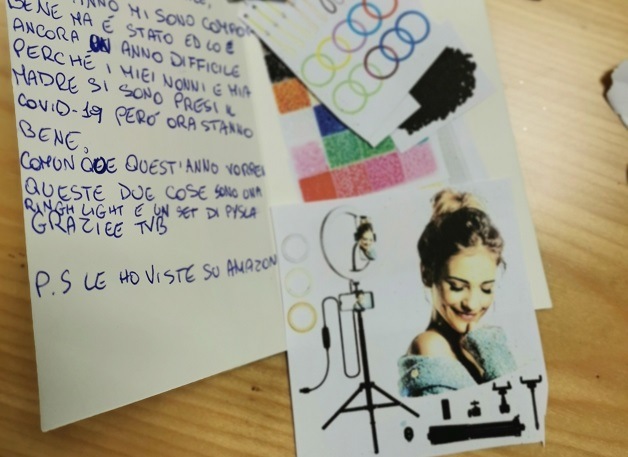 ANNO MI SONO COMPOR
BENE MA É STATO ED LO É
ANCORA UN ANNO DIFFICILE
PERCHÉ I MIEI NONNI E MIA
MADRE SI SONO PRESI IL
COVID-19 PERÒ ORA STANNO
BENE,
COMUNQUE QUEST'ANNO VORREI
QUESTE DUE COSE SONO UNA
RINGH LIGHT E UN SET DI PYSLA
GRAZIEE TVB
P.S LE HO VISTE SU AMAZON